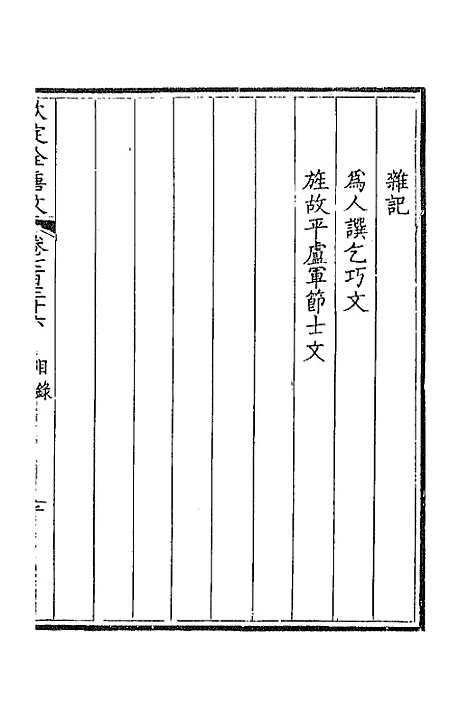 雜記
爲人譔乞巧文
旌故平盧軍節士文
欽定全唐文 卷七百三十六 目錄